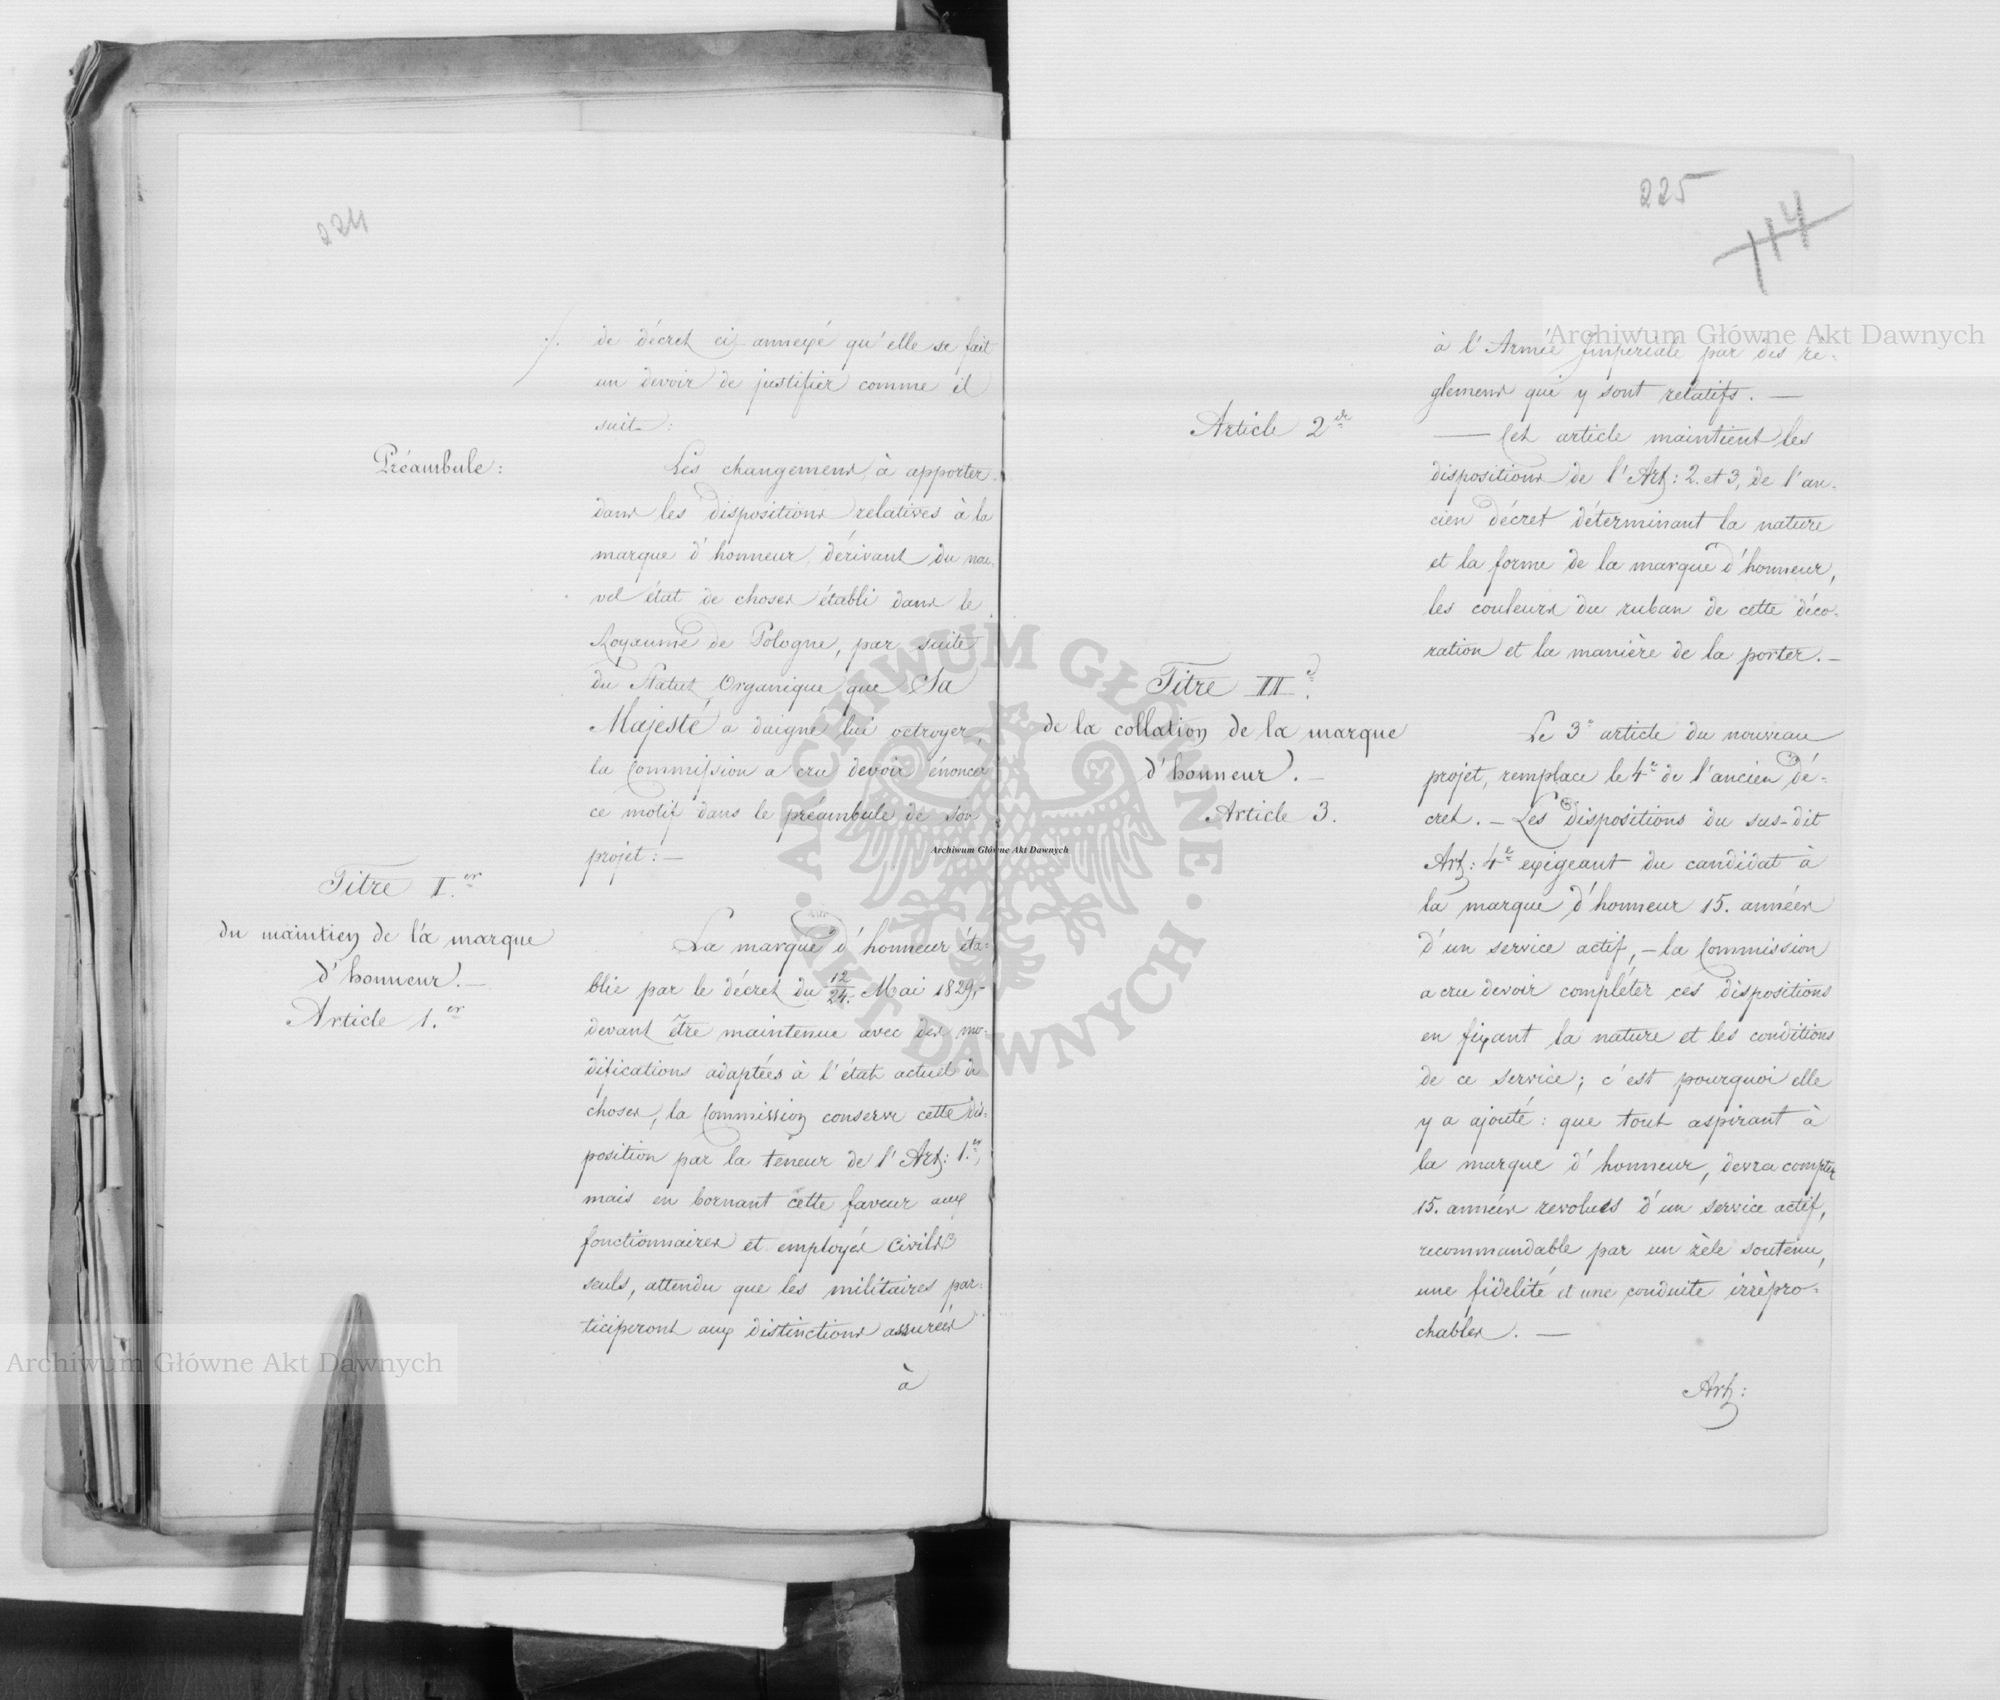 224
./.
de décret ci-annexé qu'elle se fait
un devoir de justifier comme il
suit:
Préambule:
Les changemens à apporter
dans les dispositions relatives à la
marque d'honneur, dérivant du nou-
vel état de choses établi dans le
Royaume de Pologne, par suite
du Statut Organique que Sa
Majesté a daigné lui octroyer,
la Commission a cru devoir énoncer
ce motif dans le préambule de son
projet: —
Titre I.er
du maintien de la marque
d'honneur. —
Article 1.er
La marque d'honneur éta-
blie par le décret du 12/24. Mai 1829,
devant être maintenue avec des mo-
difications adaptées à l'état actuel de
choses, la Commission conserve cette dis-
position par la teneur de l'Art: 1.er,
mais en bornant cette faveur aux
fonctionnaires et employés civils
seuls, attendu que les militaires par-
ticiperont aux distinctions assurées
à
225
114
à l'Armée Impériale par des ré-
glemens qui y sont relatifs. —
Article 2de
— Cet article maintient les
dispositions de l'Art: 2. et 3, de l'an-
cien décret déterminant la nature
et la forme de la marque d'honneur,
les couleurs du ruban de cette déco-
ration et la manière de la porter. —
Titre II.d
de la collation de la marque
d'honneur. —
Article 3.
Le 3e article du nouveau
projet, remplace le 4e de l'ancien dé-
cret. — Les dispositions du sus-dit
Art: 4e exigeant du candidat à
la marque d'honneur 15. années
d'un service actif, — la Commission
a cru devoir compléter ces dispositions
en fixant la nature et les conditions
de ce service; c'est pourquoi elle
y a ajouté: que tout aspirant à
la marque d'honneur, devra compter
15. années revolues d'un service actif,
recommandable par un zèle soutenu,
une fidelité et une conduite irrépro-
chables. —
Art:
Archiwum Główne Akt Dawnych
Archiwum Główne Akt Dawnych
Archiwum Główne Akt Dawnych
ARCHIWUM GŁÓWNE · AKT DAWNYCH ·